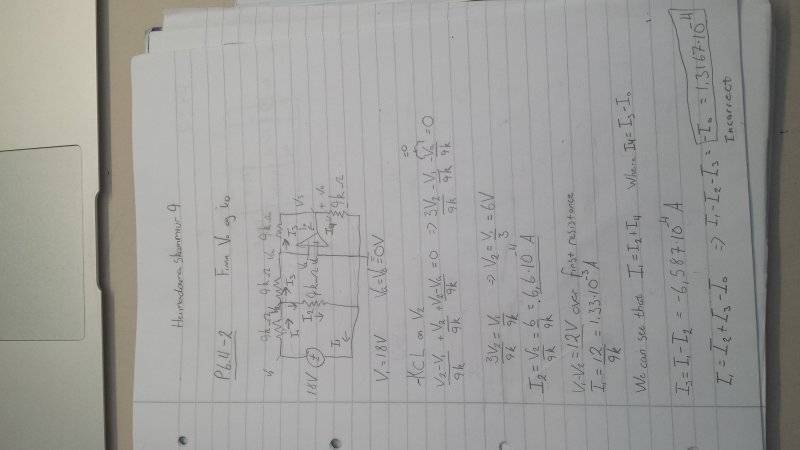 P6.4-2 Finn V₀ og i₀
9kΩ 9kΩ V₂ 9kΩ
V₁ I₁ I₃ I₃ V₃
18V I₂ 9kΩ I₄ + V₀ 9kΩ
I₁
V₁=18V Vₐ=V_b=0V
KCL on V₂
(V₂-V₁)/9k + V₂/9k + (V₂-Vₐ)/9k = 0 ⇒ 3V₂/9k - V₁/9k - Vₐ/9k = 0
=0
3V₂/9k = V₁/9k ⇒ V₂ = V₁/3 = 6V
I₂ = V₂/9k = 6/9k = 6,6·10⁻⁴ A
V₁-V₂ = 12V over first resistance
I₁ = 12/9k = 1.33·10⁻³ A
We can see that I₁ = I₂ + I₄ Where I₄ = I₃ - I₀
I₃ = I₁ - I₂ = -6,587·10⁻⁴ A
I₁ = I₂ + I₃ - I₀ ⇒ I₁ - I₂ - I₃ = -I₀ = 1,3167·10⁻⁴
Incorrect